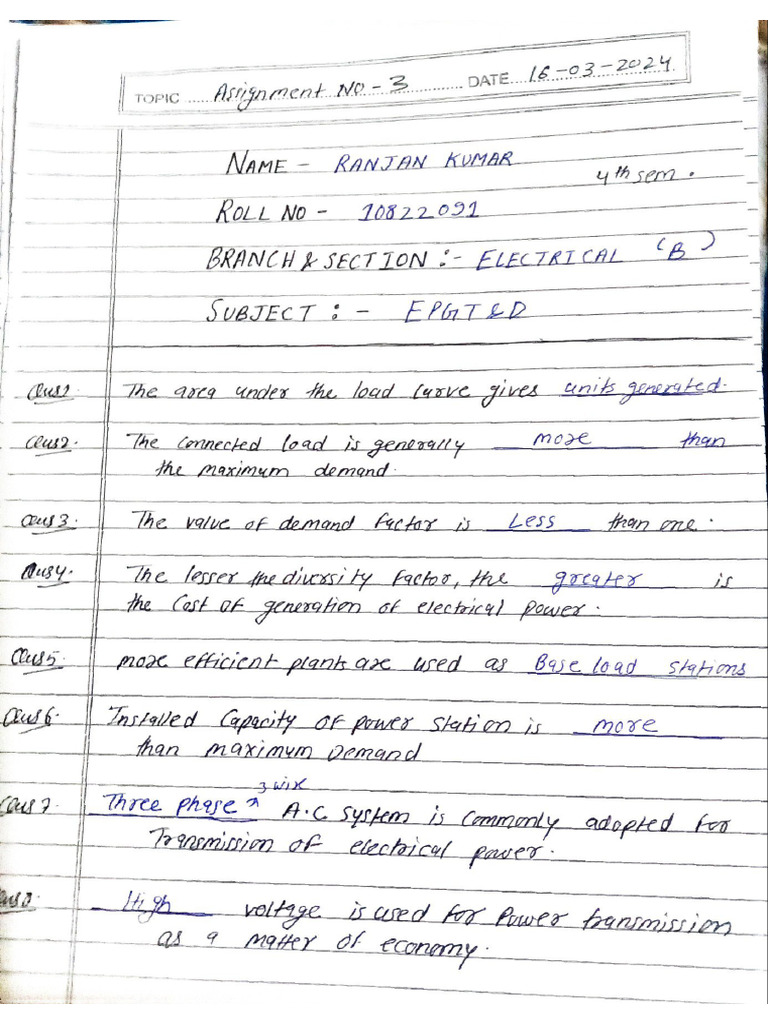 TOPIC ..... Assignment NO - 3 ..... DATE 16-03-2024
NAME - RANJAN KUMAR
4th sem.
ROLL NO - 10822091
BRANCH & SECTION :- ELECTRICAL (B)
SUBJECT :- EPGT&D
Ans1. The area under the load curve gives units generated.
Ans2. The connected load is generally more than
the maximum demand.
Ans3. The value of demand factor is Less than one.
Ans4. The lesser the diversity factor, the greater is
the cost of generation of electrical power.
Ans5. more efficient plants are used as Base load stations
Ans6. Installed Capacity of power station is more
than maximum Demand
3 wire
Ans7. Three phase ^ A.C system is commonly adopted for
Transmission of electrical power.
Ans8. High voltage is used for Power transmission
as a matter of economy.